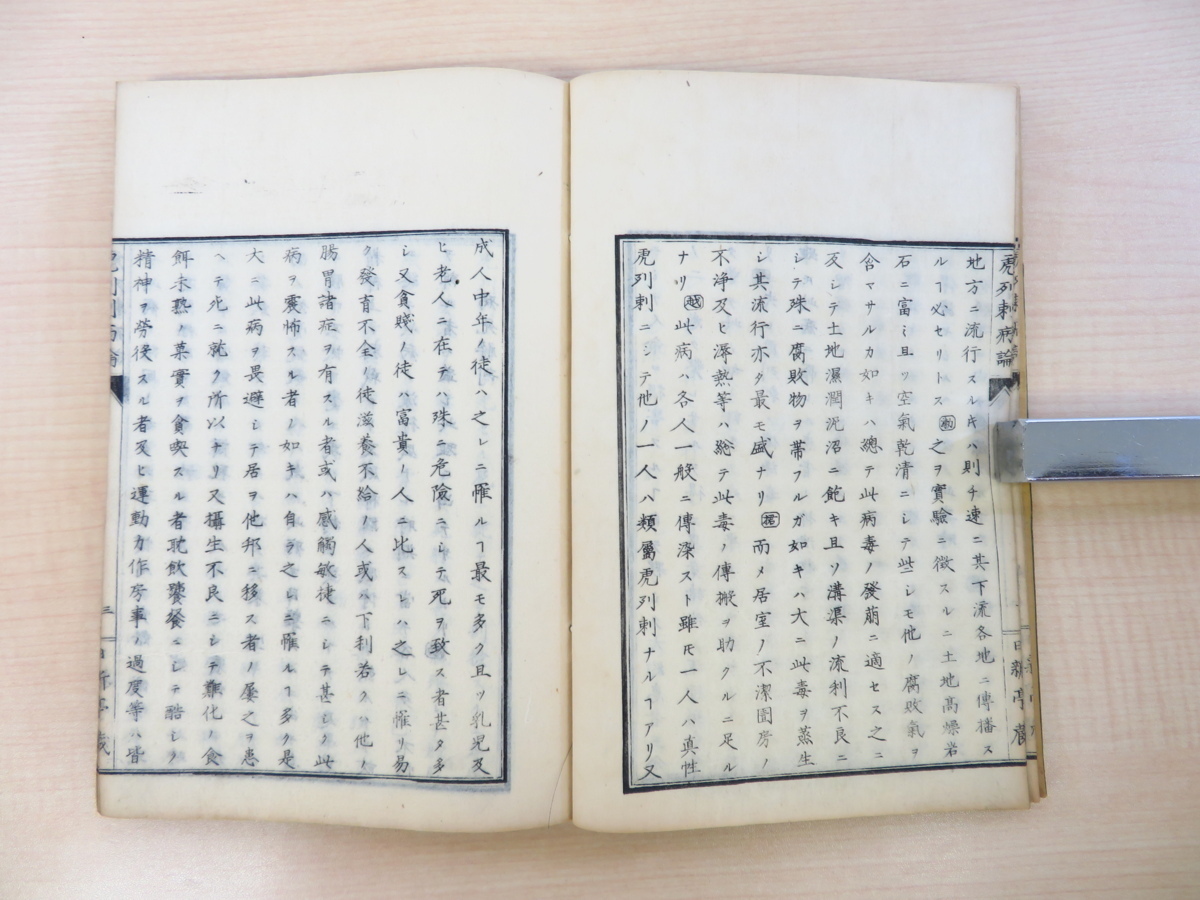 虎列剌病論
日新亭藏
地方ニ流行スル𪜈ハ則チ速ニ其下流各地ニ傳播ス
ルヿ必セリトス㊙之ヲ實驗ニ徴スルニ土地高燥岩
石ニ富ミ且ツ空氣乾清ニシテ些シモ他ノ腐敗氣ヲ
含マサルカ如キハ總テ此病毒ノ發萠ニ適セス之ニ
反シテ土地濕潤泥沼ニ飽キ且ソ溝渠ノ流利不良ニ
シテ殊ニ腐敗物ヲ帶フルガ如キハ大ニ此毒ヲ蒸生
シ其流行亦タ最モ盛ナリ 而メ居室ノ不潔圊房ノ
不浄及ヒ溽熱等ハ総テ此毒ノ傳搬ヲ助クルニ足ル
ナリ 越 此病ハ各人一般ニ傳染スト雖𪜈一人ハ真性
虎列剌ニシテ他ノ一人ハ類屬虎列剌ナルヿアリ又
成人中年ノ徒ハ之レニ罹ルヿ最モ多ク且ツ乳児及
ヒ老人ニ在テハ殊ニ危險ニシテ死ヲ致ス者甚タ多
シ又貪賤ノ徒ハ富貴ノ人ニ比スレハ之レニ罹リ易
ク發育不全ノ徒滋養不給ノ人或ハ下利若クハ他ノ
腸胃諸症ヲ有スル者或ハ感觸敏捷ニシテ甚シク此
病ヲ震怖スル者ノ如キハ自ラ之レニ罹ルヿ多ク是
大ニ此病ヲ畏避シテ居ヲ他邦ニ移ス者ノ屡之ヲ患
ヘテ死ニ就ク所以ナリ又攝生不良ニシテ難化ノ食
餌未熟ノ菓實ヲ貪喫スル者耽飲饕餮ニシテ酷シク
精神ヲ勞役スル者及ヒ運動力作房事ノ過度等ハ皆
三